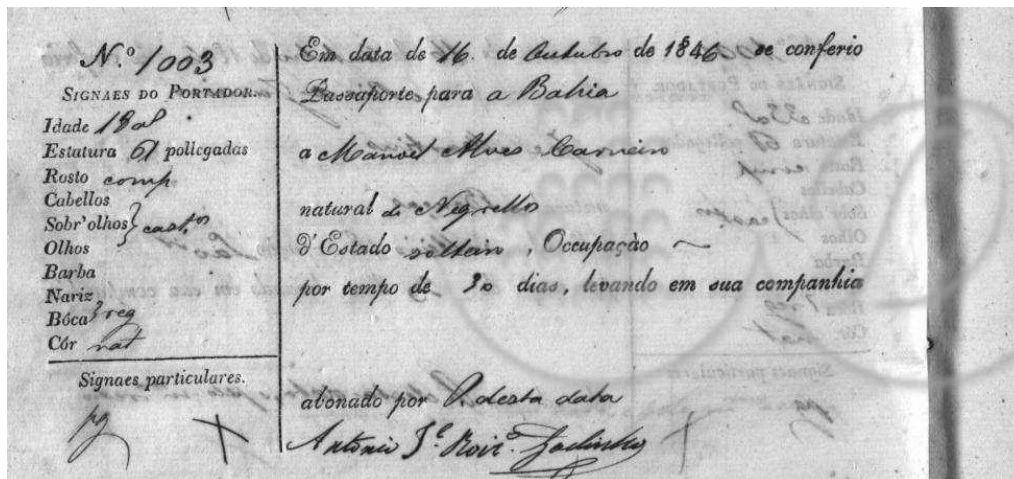 N.º 1003
SIGNAES DO PORTADOR.
Idade 18 a
Estatura 61 pollegadas
Rosto comp
Cabellos
Sobr'olhos } castos
Olhos
Barba
Nariz
Bôca } reg
Côr nat
Signaes particulares.
pg
Em data de 16. de Outubro de 1846 se conferio
Passaporte para a Bahia
a Manoel Alves Carneiro
natural de Negrellos
d'Estado solteiro, Occupação ~
por tempo de 30 dias, levando em sua companhia
abonado por P. desta data
Antonio J.e Roiz Godinho